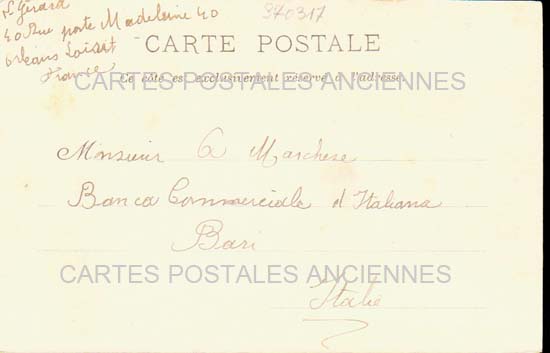 L Girard
40 Rue porte Madeleine 40
Orléans Loiret
France
370317
CARTE POSTALE
Ce côté es exclusivement réservé à l'adresse.
CARTES POSTALES ANCIENNES
Monsieur G Marchese
Banca Commerciale d'Italiana
Bari
CARTES POSTALES ANCIENNES
Italie